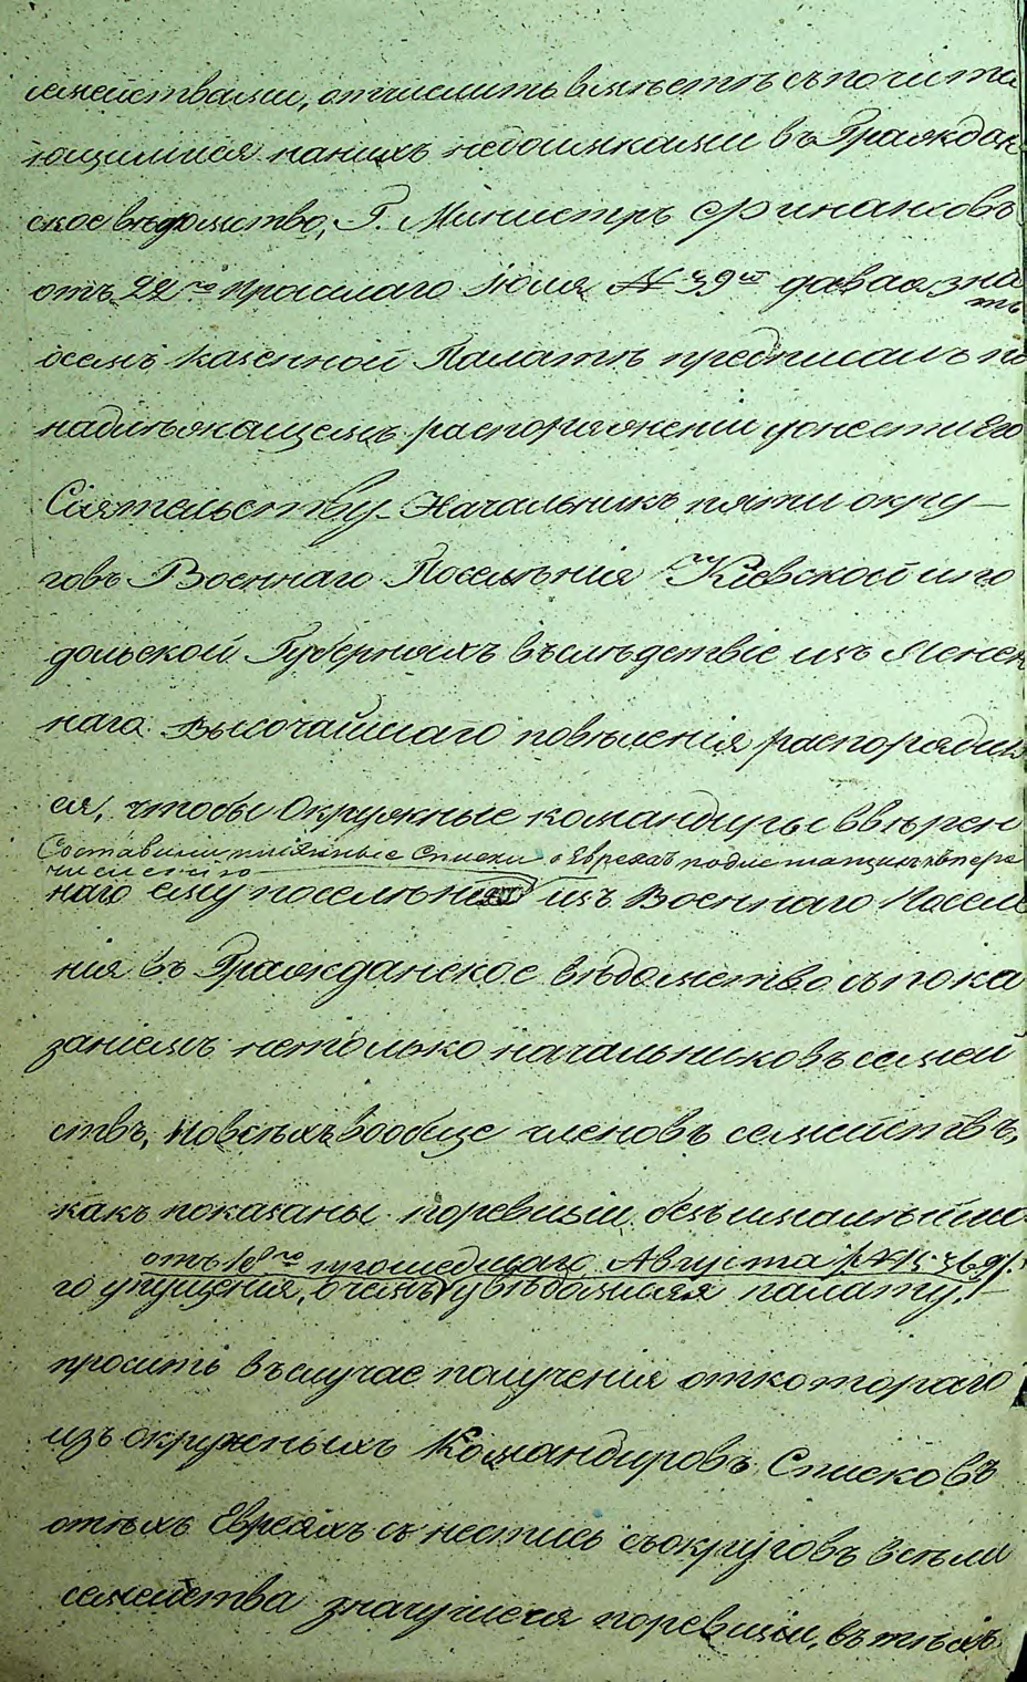 семействами, отчислить вместѣ съ почита
ющимися наниχъ недоимками въ Граждан
ское вѣдомство, Г. Министръ Финансовъ
отъ 22го прошлаго Июля № 39й давая зна
ть
осемъ Казенной Палатѣ предписалъ по
надлѣжащемъ распоряженіи донести Его
Сіятельству. Начальникъ пяти окру–
говъ Военнаго Поселѣнія Кіевской ипо
дольской Губерніяхъ въслѣдствіе изъ яснен
наго Высочайшаго повѣленія распорядил
ся, чтобы Окружные командиры ввѣрен
Составили имянные Списки о Евреяхъ подлежащихъ пере
численію
наго ему поселѣнія изъ Военнаго Поселе
нія въ Гражданское вѣдомство съ пока
заніемъ нетолько начальниковъ семей
ствъ, новсѣхъ вообще членовъ семействъ,
какъ показаны поревизіи безъ малѣйша
отъ 18го прошедшаго Августа
го упущенія, очемъ увѣдомляя палату,
просить въслучае полученія открораго
изъ окружныхъ Командировъ Списковъ
отѣхъ Евреяхъ снестись съокруговъ всѣли
семейства значущіеся поревизіи, въ тѣхъ